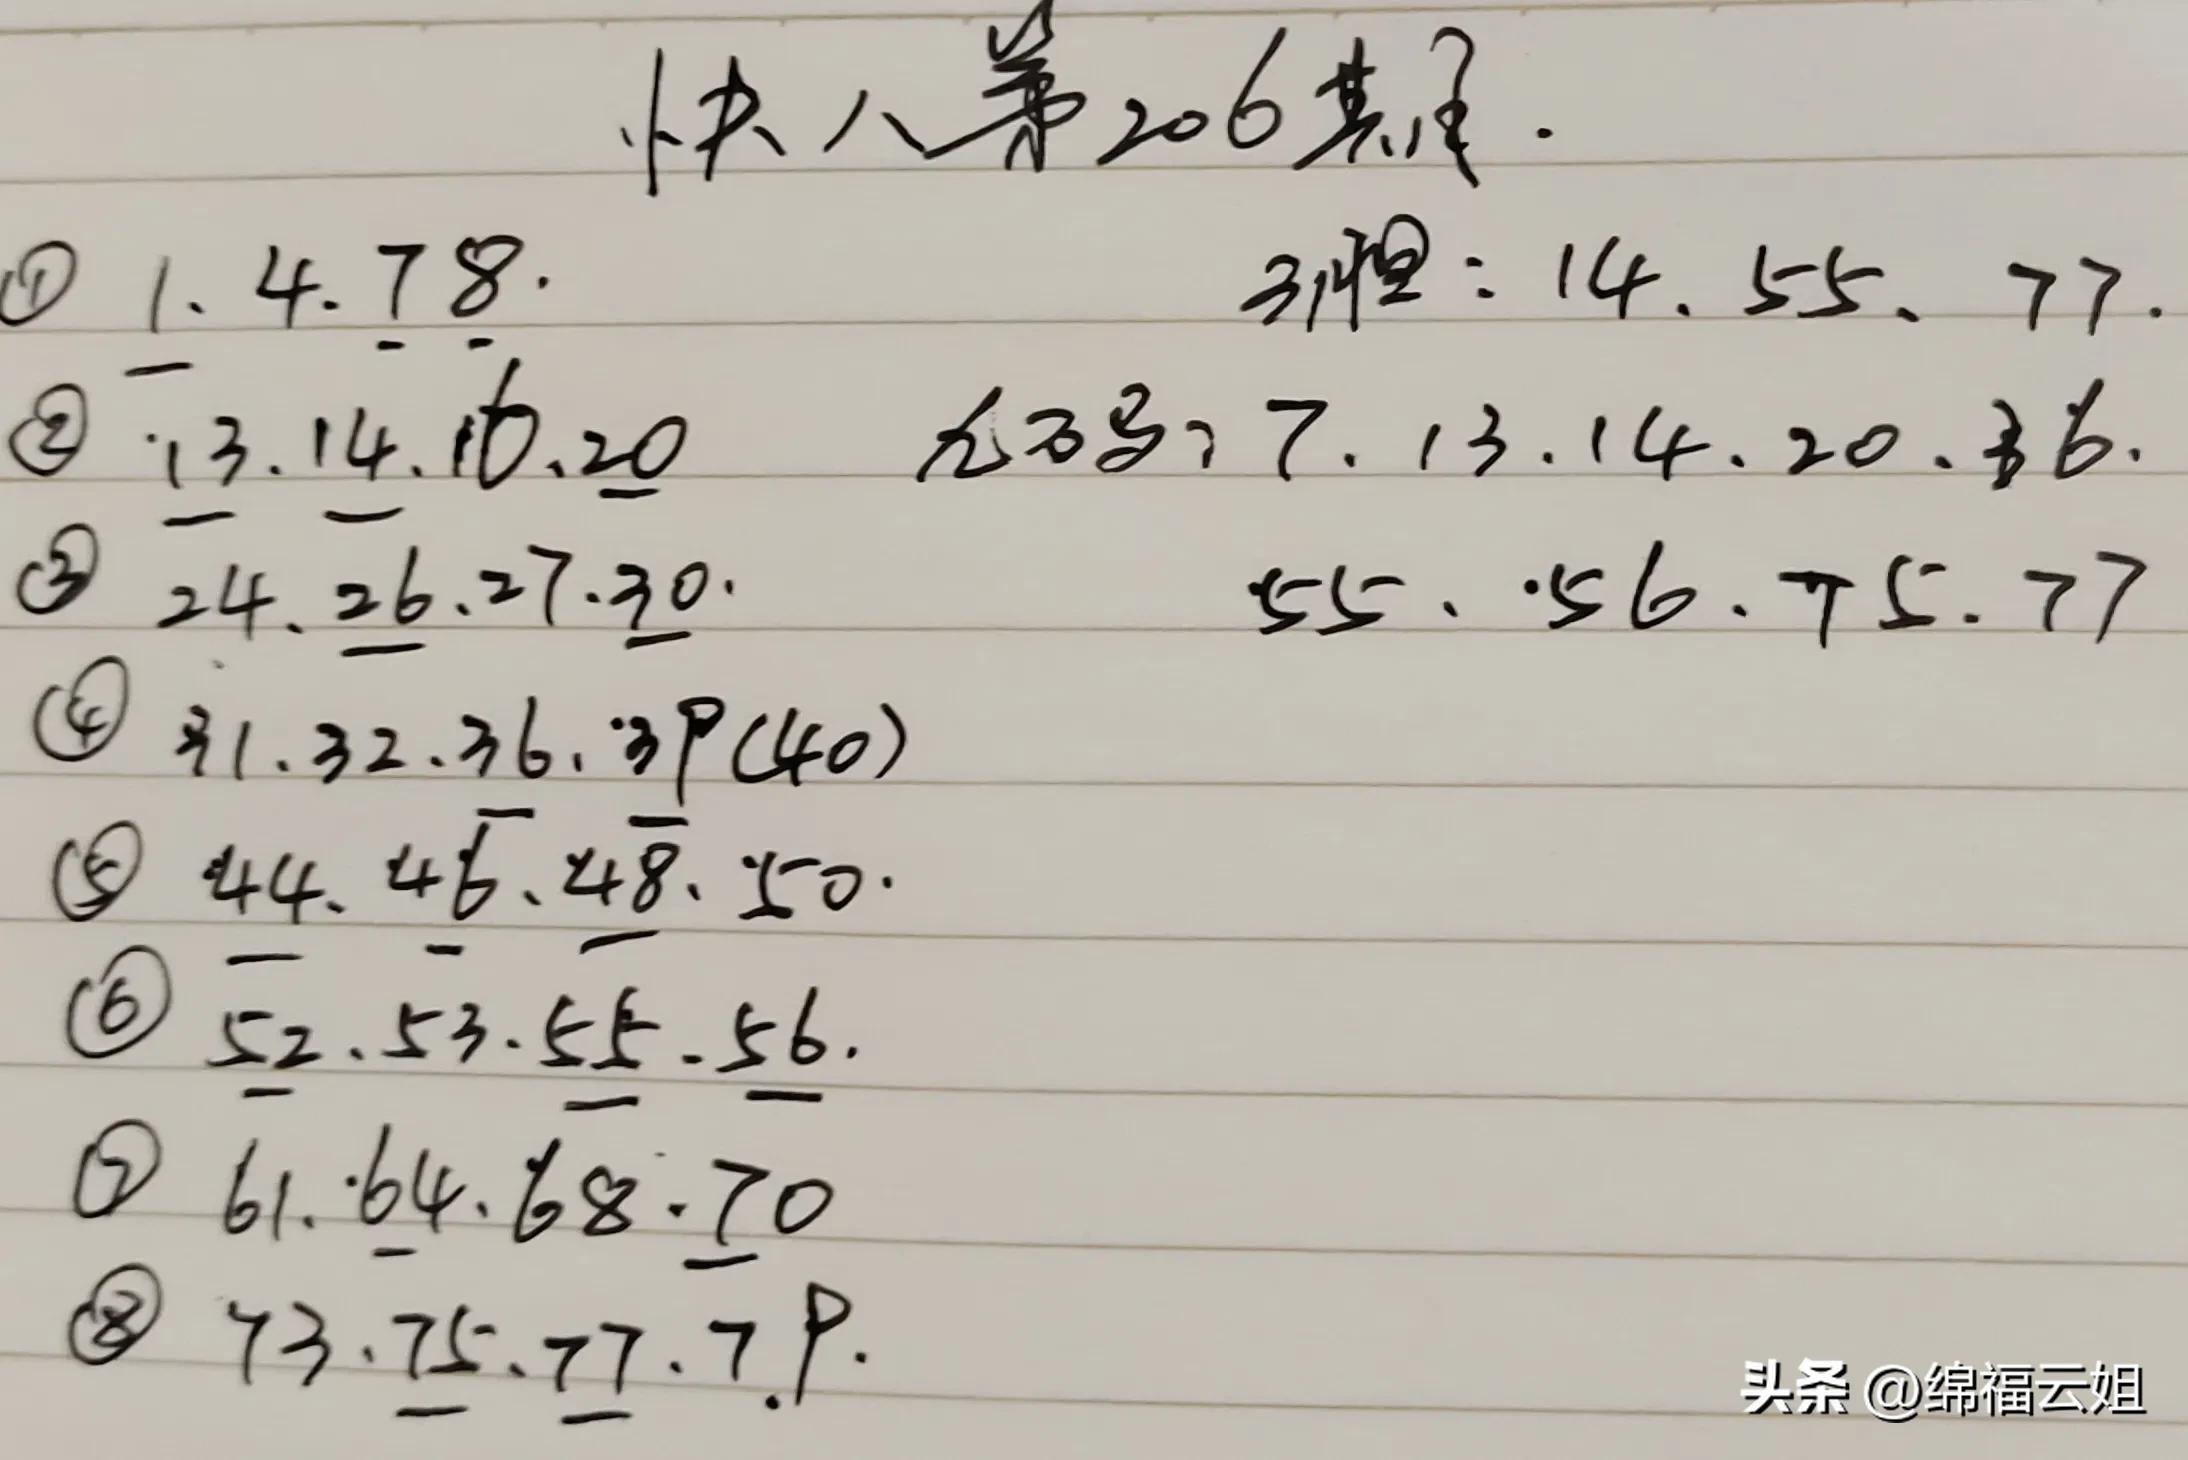 快八第206期.
① 1. 4. 7 8.
3胆: 14. 55. 77.
② 13. 14. 16. 20
九石马: 7. 13. 14. 20. 36.
③ 24. 26. 27. 30.
55. 56. 75. 77
④ 31. 32. 36. 39(40)
⑤ 44. 46. 48. 50.
⑥ 52. 53. 55. 56.
⑦ 61. 64. 68. 70
⑧ 73. 75. 77. 79.
头条 @绵福云姐